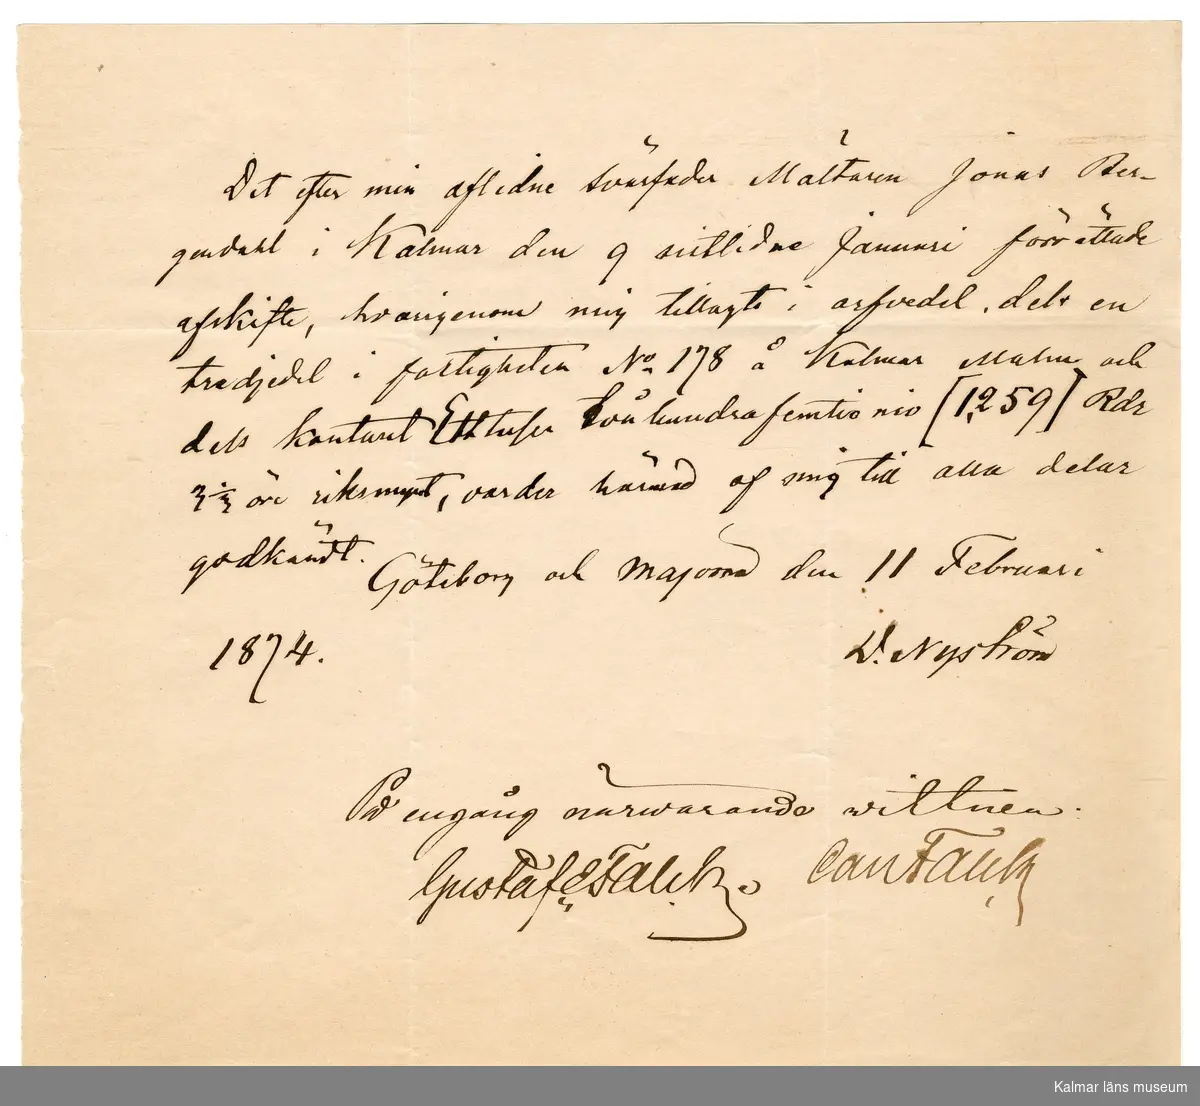 Det efter min aflidne svärfader Mältaren Jonas Ber-
gendahl i Kalmar den 9 sistlidne Januari förrättade
afskifte, hvarigenom mig tillagts i arfvedel, dels en
tredjedel i fastigheten No 178 å Kalmar Malm och
dels kontant Ett tusen Tvåhundrafemtio nio [1,259] Rdr
3 1/3 öre riksmynt, varder härmed af mig till alla delar
godkändt.
Göteborg och Majorna den 11 Februari
1874.
D. Nyström
På engång närwarande wittnen:
Gustaf E Falck. Carl Falck
Kalmar läns museum